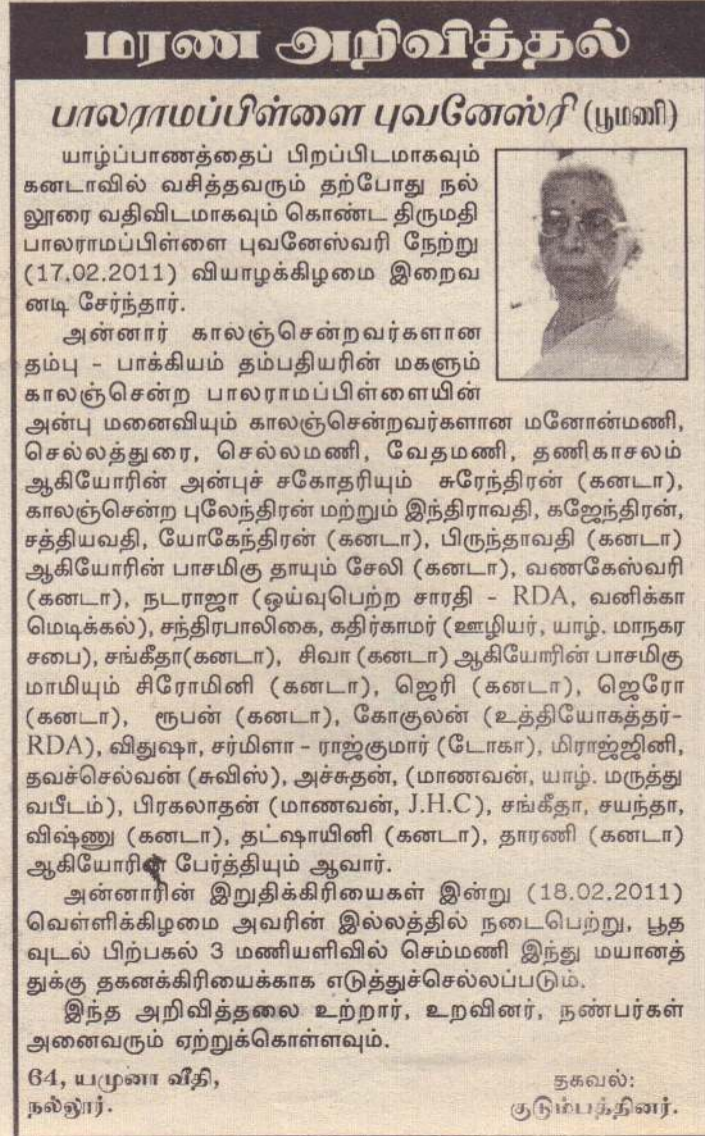 மரண அறிவித்தல்
பாலராமப்பிள்ளை புவனேஸ்ரி (பூமணி)
யாழ்ப்பாணத்தைப் பிறப்பிடமாகவும்
கனடாவில் வசித்தவரும் தற்போது நல்
லூரை வதிவிடமாகவும் கொண்ட திருமதி
பாலராமப்பிள்ளை புவனேஸ்வரி நேற்று
(17.02.2011) வியாழக்கிழமை இறைவ
னடி சேர்ந்தார்.
அன்னார் காலஞ்சென்றவர்களான
தம்பு - பாக்கியம் தம்பதியரின் மகளும்
காலஞ்சென்ற பாலராமப்பிள்ளையின்
அன்பு மனைவியும் காலஞ்சென்றவர்களான மனோன்மணி,
செல்லத்துரை, செல்லமணி, வேதமணி, தணிகாசலம்
ஆகியோரின் அன்புச் சகோதரியும் சுரேந்திரன் (கனடா),
காலஞ்சென்ற புலேந்திரன் மற்றும் இந்திராவதி, கஜேந்திரன்,
சத்தியவதி, யோகேந்திரன் (கனடா), பிருந்தாவதி (கனடா)
ஆகியோரின் பாசமிகு தாயும் சேலி (கனடா), வணகேஸ்வரி
(கனடா), நடராஜா (ஓய்வுபெற்ற சாரதி - RDA, வனிக்கா
மெடிக்கல்), சந்திரபாலிகை, கதிர்காமர் (ஊழியர், யாழ். மாநகர
சபை), சங்கீதா(கனடா), சிவா (கனடா) ஆகியோரின் பாசமிகு
மாமியும் சிரோமினி (கனடா), ஜெரி (கனடா), ஜெரோ
(கனடா), ரூபன் (கனடா), கோகுலன் (உத்தியோகத்தர்-
RDA), விதுஷா, சர்மிளா - ராஜ்குமார் (டோகா), மிராஜ்ஜினி,
தவச்செல்வன் (சுவிஸ்), அச்சுதன், (மாணவன், யாழ். மருத்து
வபீடம்), பிரகலாதன் (மாணவன், J.H.C), சங்கீதா, சயந்தா,
விஷ்ணு (கனடா), தட்ஷாயினி (கனடா), தாரணி (கனடா)
ஆகியோரின் பேர்த்தியும் ஆவார்.
அன்னாரின் இறுதிக்கிரியைகள் இன்று (18.02.2011)
வெள்ளிக்கிழமை அவரின் இல்லத்தில் நடைபெற்று, பூத
வுடல் பிற்பகல் 3 மணியளிவில் செம்மணி இந்து மயானத்
துக்கு தகனக்கிரியைக்காக எடுத்துச்செல்லப்படும்.
இந்த அறிவித்தலை உற்றார், உறவினர், நண்பர்கள்
அனைவரும் ஏற்றுக்கொள்ளவும்.
64, யமுனா வீதி,
நல்லூர்.
தகவல்:
குடும்பத்தினர்.